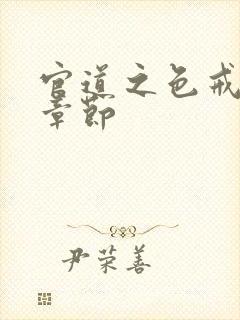 官道之色戒
章节
尹荣善